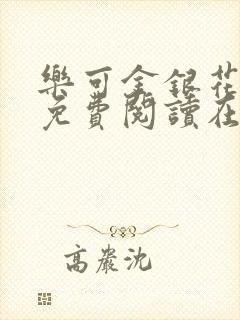 樂可金銀花
免費閱讀在
高嚴沈